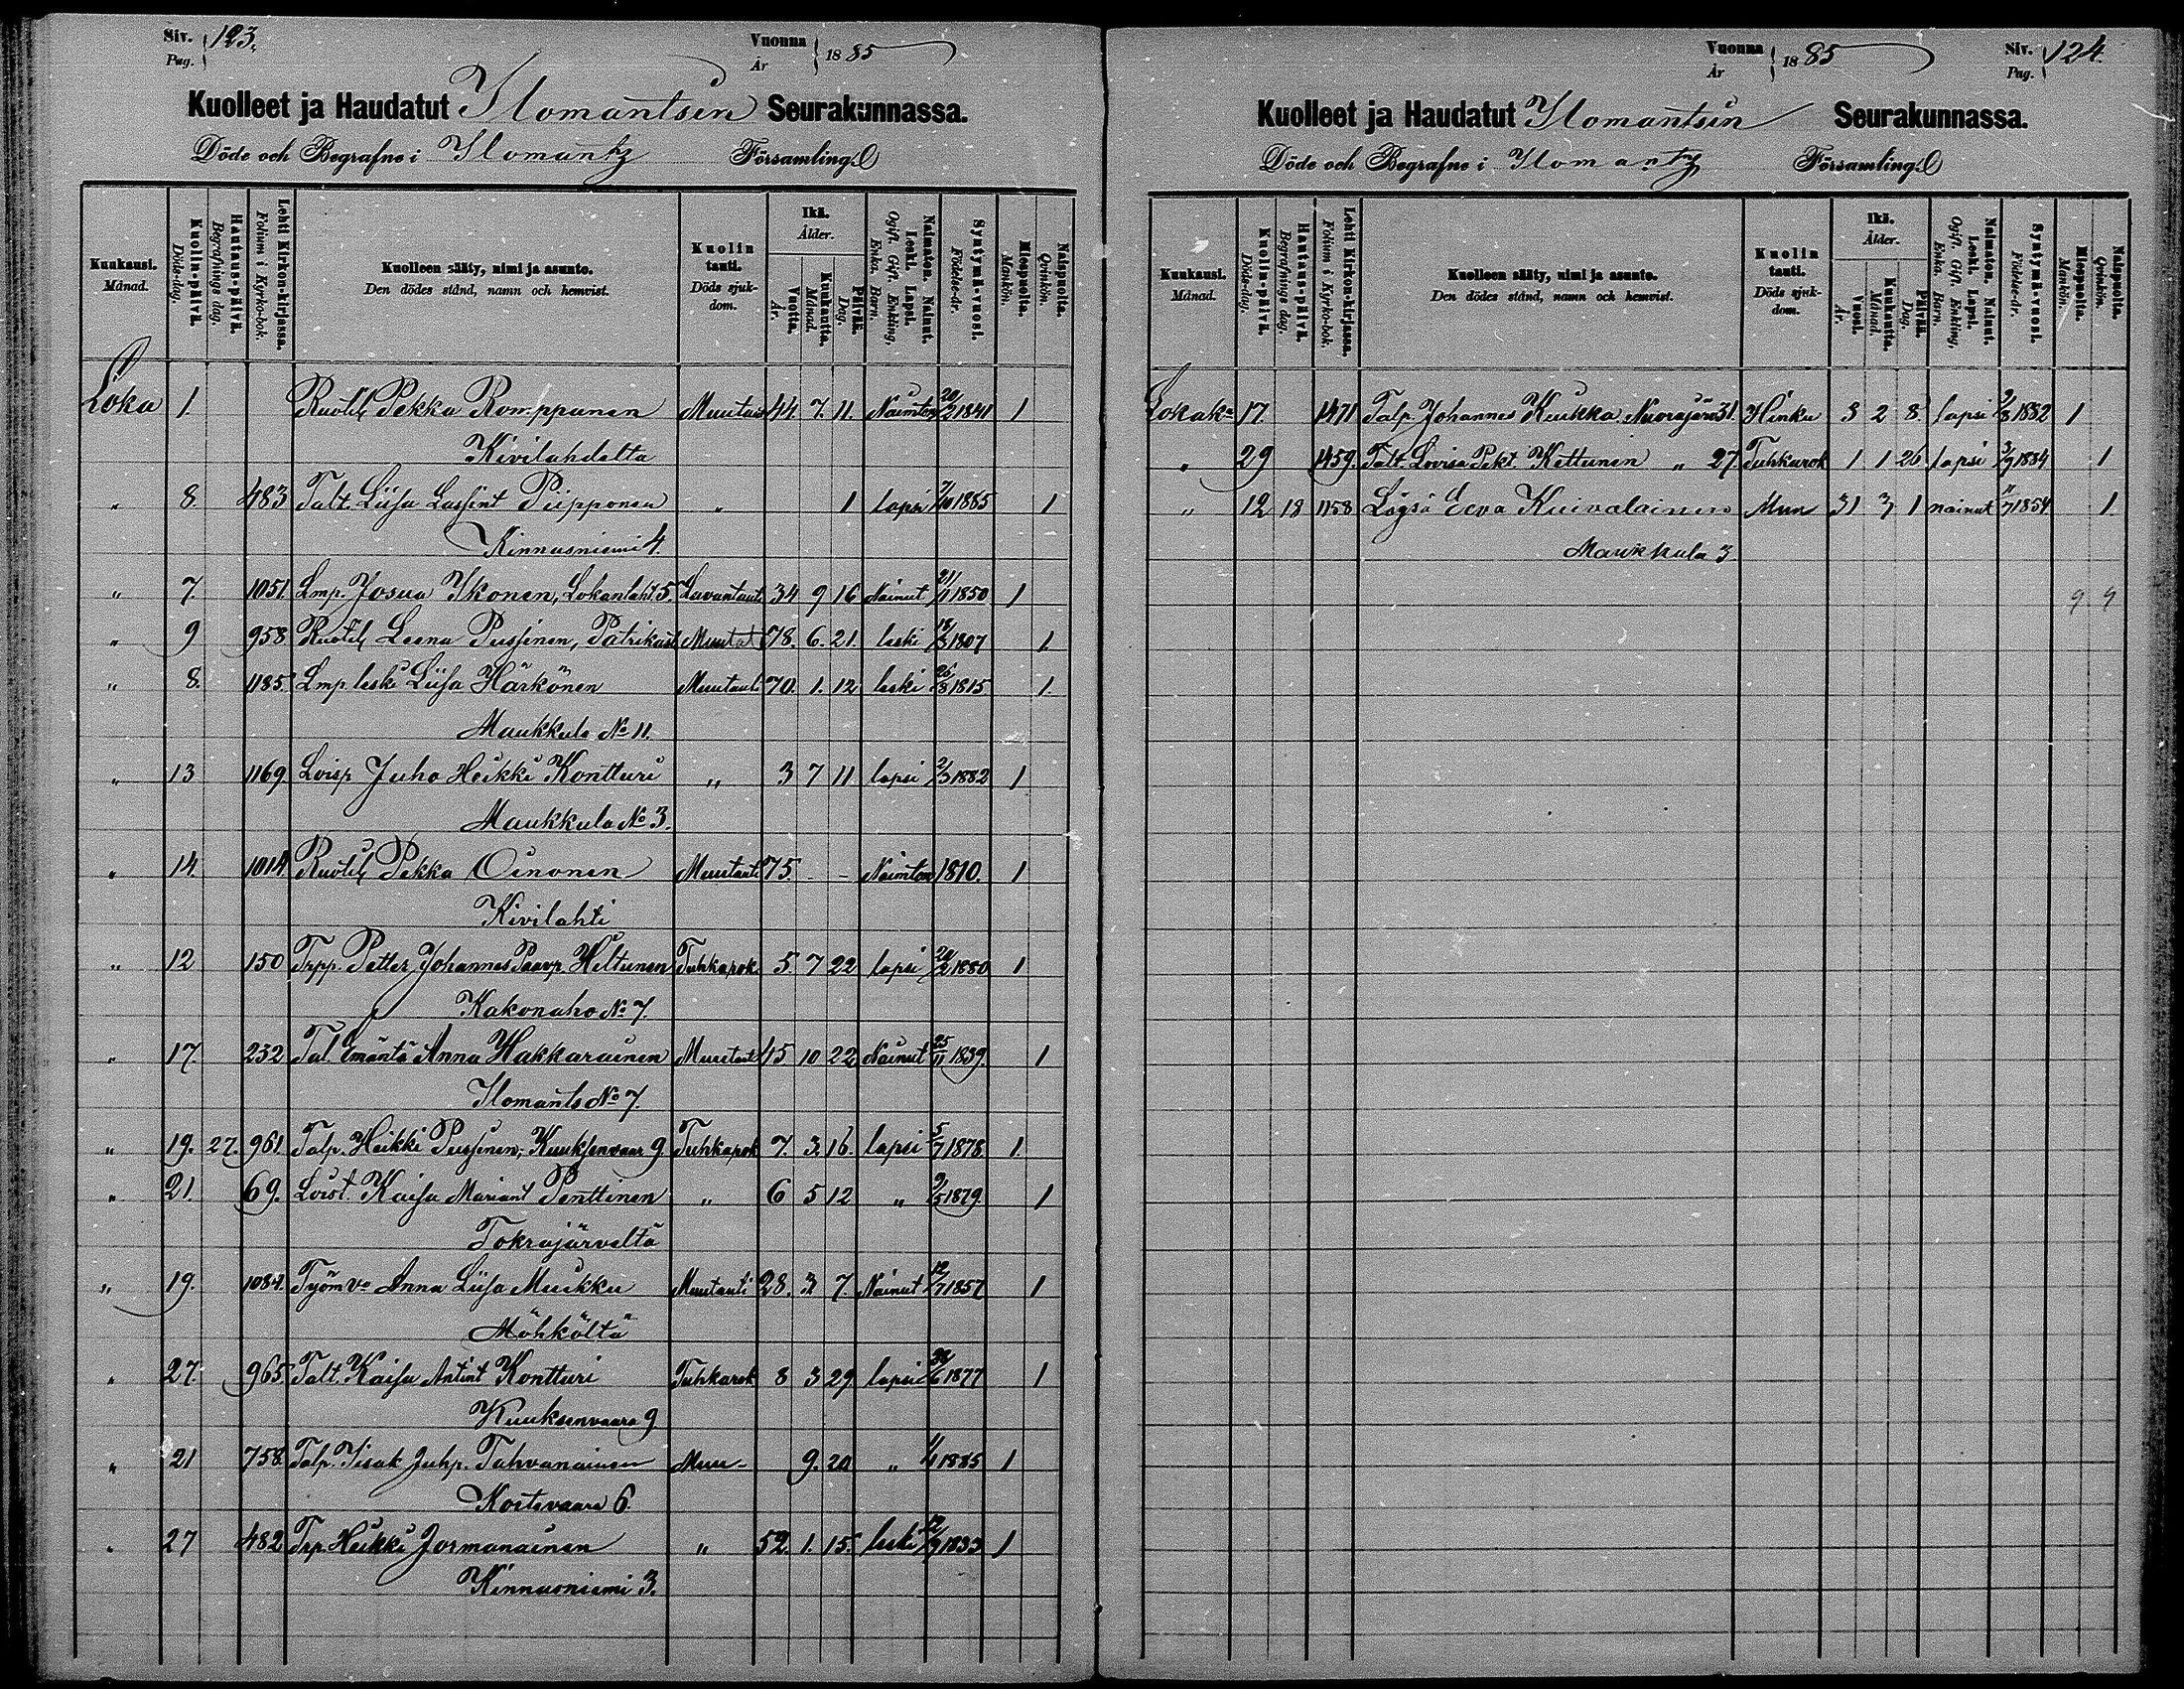 Siv. Pag. 123. Vuonna År 1885
Kuolleet ja Haudatut Ilomantsin Seurakunnassa.
Döde och Begrafne i Ilomantz Församling.
Kuukausi. Månad. Kuolin-päivä. Döds-dag. Hautaus-päivä. Begrafnings dag. Lehti Kirkon-kirjassa. Folium i Kyrko-bok. Kuolleen sääty, nimi ja asunto. Den dödes stånd, namn och hemvist. Kuolin tauti. Döds sjukdom. Ikä. Ålder. Vuotta. År. Kuukautta. Månad. Päivää. Dag. Naimaton. Nainut. Leski. Lapsi. Ogift. Gift. Enkling, Enka. Barn. Syntymä-vuosi. Födelse-år. Miespuolta. Mankön. Naispuolta. Qvinkön.
Loka 1. Ruotil Pekka Romppanen Muutau 44 7. 11. Naimton 20/2 1841 1
Kivilahdelta
" 8. 483 Talt. Liisa Lassint Piipponen " 1 lapsi 7/10 1885 1
Kinnasniemi 4.
" 7. 1051. Lmp. Josua Ikonen, Lokanlaht. 5. Lavantaut 34 9 16 Nainut 21/11 1850 1
" 9 958 Ruotil Leena Pussinen, Patrikast Muutat 78. 6. 21. leski 18/3 1807 1.
" 8. 1185. Lmp. leski Liisa Härkönen Muutauti 70. 1. 12 leski 26/8 1815 1.
Maukkula No 11.
" 13 1169. Loisp Juho Heikki Kontturi " 3 7 11 lapsi 2/3 1882 1
Maukkula No 3.
" 14. 1014 Ruotil Pekka Oinonen Muutauti 75. - - Naimton 1810. 1
Kivilahti
" 12 150 Trpp. Petter Johannes Paavp. Hiltunen Tuhkarok 5. 7 22 lapsi 20/2 1880 1
Kakonaho No 7.
" 17. 232 Tal. emäntä Anna Hakkarainen Muutauti 45 10 22 Nainut 25/11 1839. 1
Ilomants No 7.
" 19. 27. 961. Talp. Heikki Pussinen, Kuuksenvaar 9 Tuhkarok 7. 3. 16. lapsi 5/7 1878 1.
" 21. 69. Loist. Kaisa Mariant Penttinen " 6 5 12 " 9/5 1879. 1
Tokrajärveltä
" 19. 1084. Työmvo Anna Liisa Muikku Muutauti 28. 3 7. Nainut 12/7 1857 1
Möhköltä
" 27. 965. Talt. Kaisa Antint Kontturi Tuhkarok 8 3 29 lapsi /6 1877 1
Kuuksenvaara 9
" 21 758. Talp. Iisak Juhp. Tahvanainen Muu- 9. 20 " 1/1 1885 1
Koitevaara 6.
" 27 482 Trp. Heikki Jormanainen " 52. 1. 15. leski 12/9 1833 1
Kinnasniemi 3.
Vuonna År 1885 Siv. Pag. 124.
Kuolleet ja Haudatut Ilomantsin Seurakunnassa.
Döde och Begrafne i Ilomantz Församling.
Kuukausi. Månad. Kuolin-päivä. Döds-dag. Hautaus-päivä. Begrafnings dag. Lehti Kirkon-kirjassa. Folium i Kyrko-bok. Kuolleen sääty, nimi ja asunto. Den dödes stånd, namn och hemvist. Kuolin tauti. Döds sjukdom. Ikä. Ålder. Vuosi. År. Kuukautta. Månad. Päivää. Dag. Naimaton. Nainut. Leski. Lapsi. Ogift. Gift. Enkling, Enka. Barn. Syntymä-vuosi. Födelse-år. Miespuolta. Mankön. Naispuolta. Qvinkön.
Lokak. 17. 1471 Talp. Johannes Kukka. Nuorajärv 31. Hinku 3 2 8. lapsi 9/8 1882 1
" 29 1459. Talt. Lovisa Pekt. Kettunen " 27. Tuhkarok 1 1 26 lapsi 3/9 1884 1
" 12 18 1158 Lögsö Eeva Kuivalainen Muu 31 3 1 nainut 11/7 1854. 1.
Maukkula 3
9 9